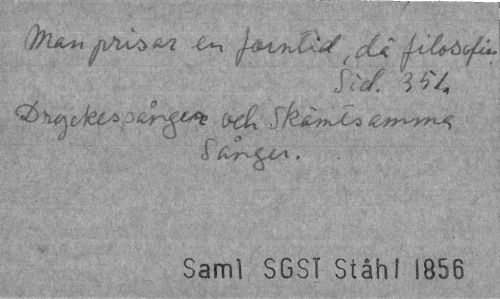 Man prisar en forntid, då filosofin
Sid. 351.
Dryckessånger och Skämtsamma
Sånger.
Saml SGST Ståhl 1856